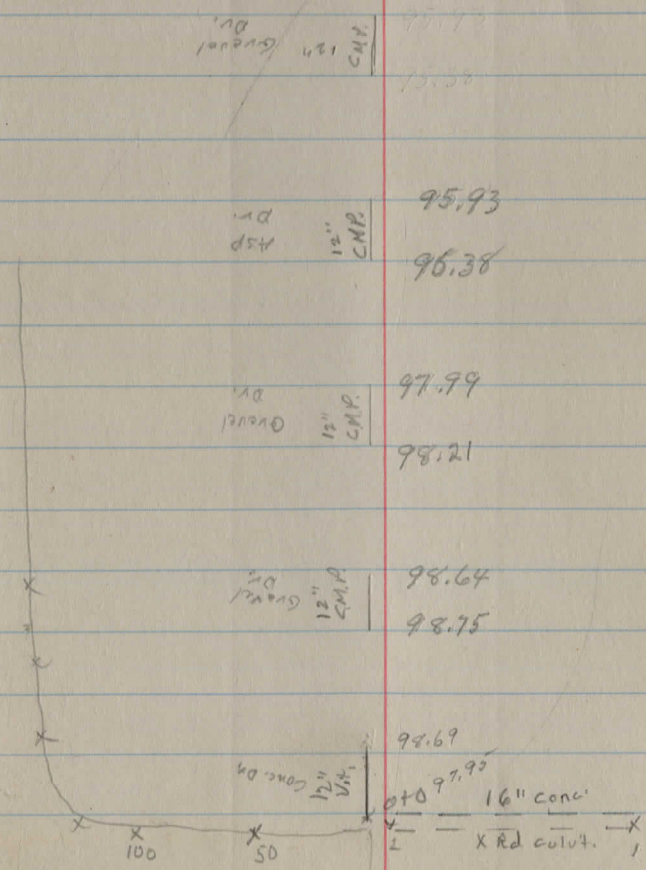 Gravel
Dr.
12"
C.M.P.
95.38
Asp
Dr.
12"
C.M.P.
95.93
96.38
Gravel
Dr.
12"
C.M.P.
97.99
98.21
Gravel
Dr.
12"
C.M.P.
98.64
98.75
98.69
Conc. Dr.
12"
Vit.
97.95
0+0
16" conc.
X Rd culvt.
100
50
2
1